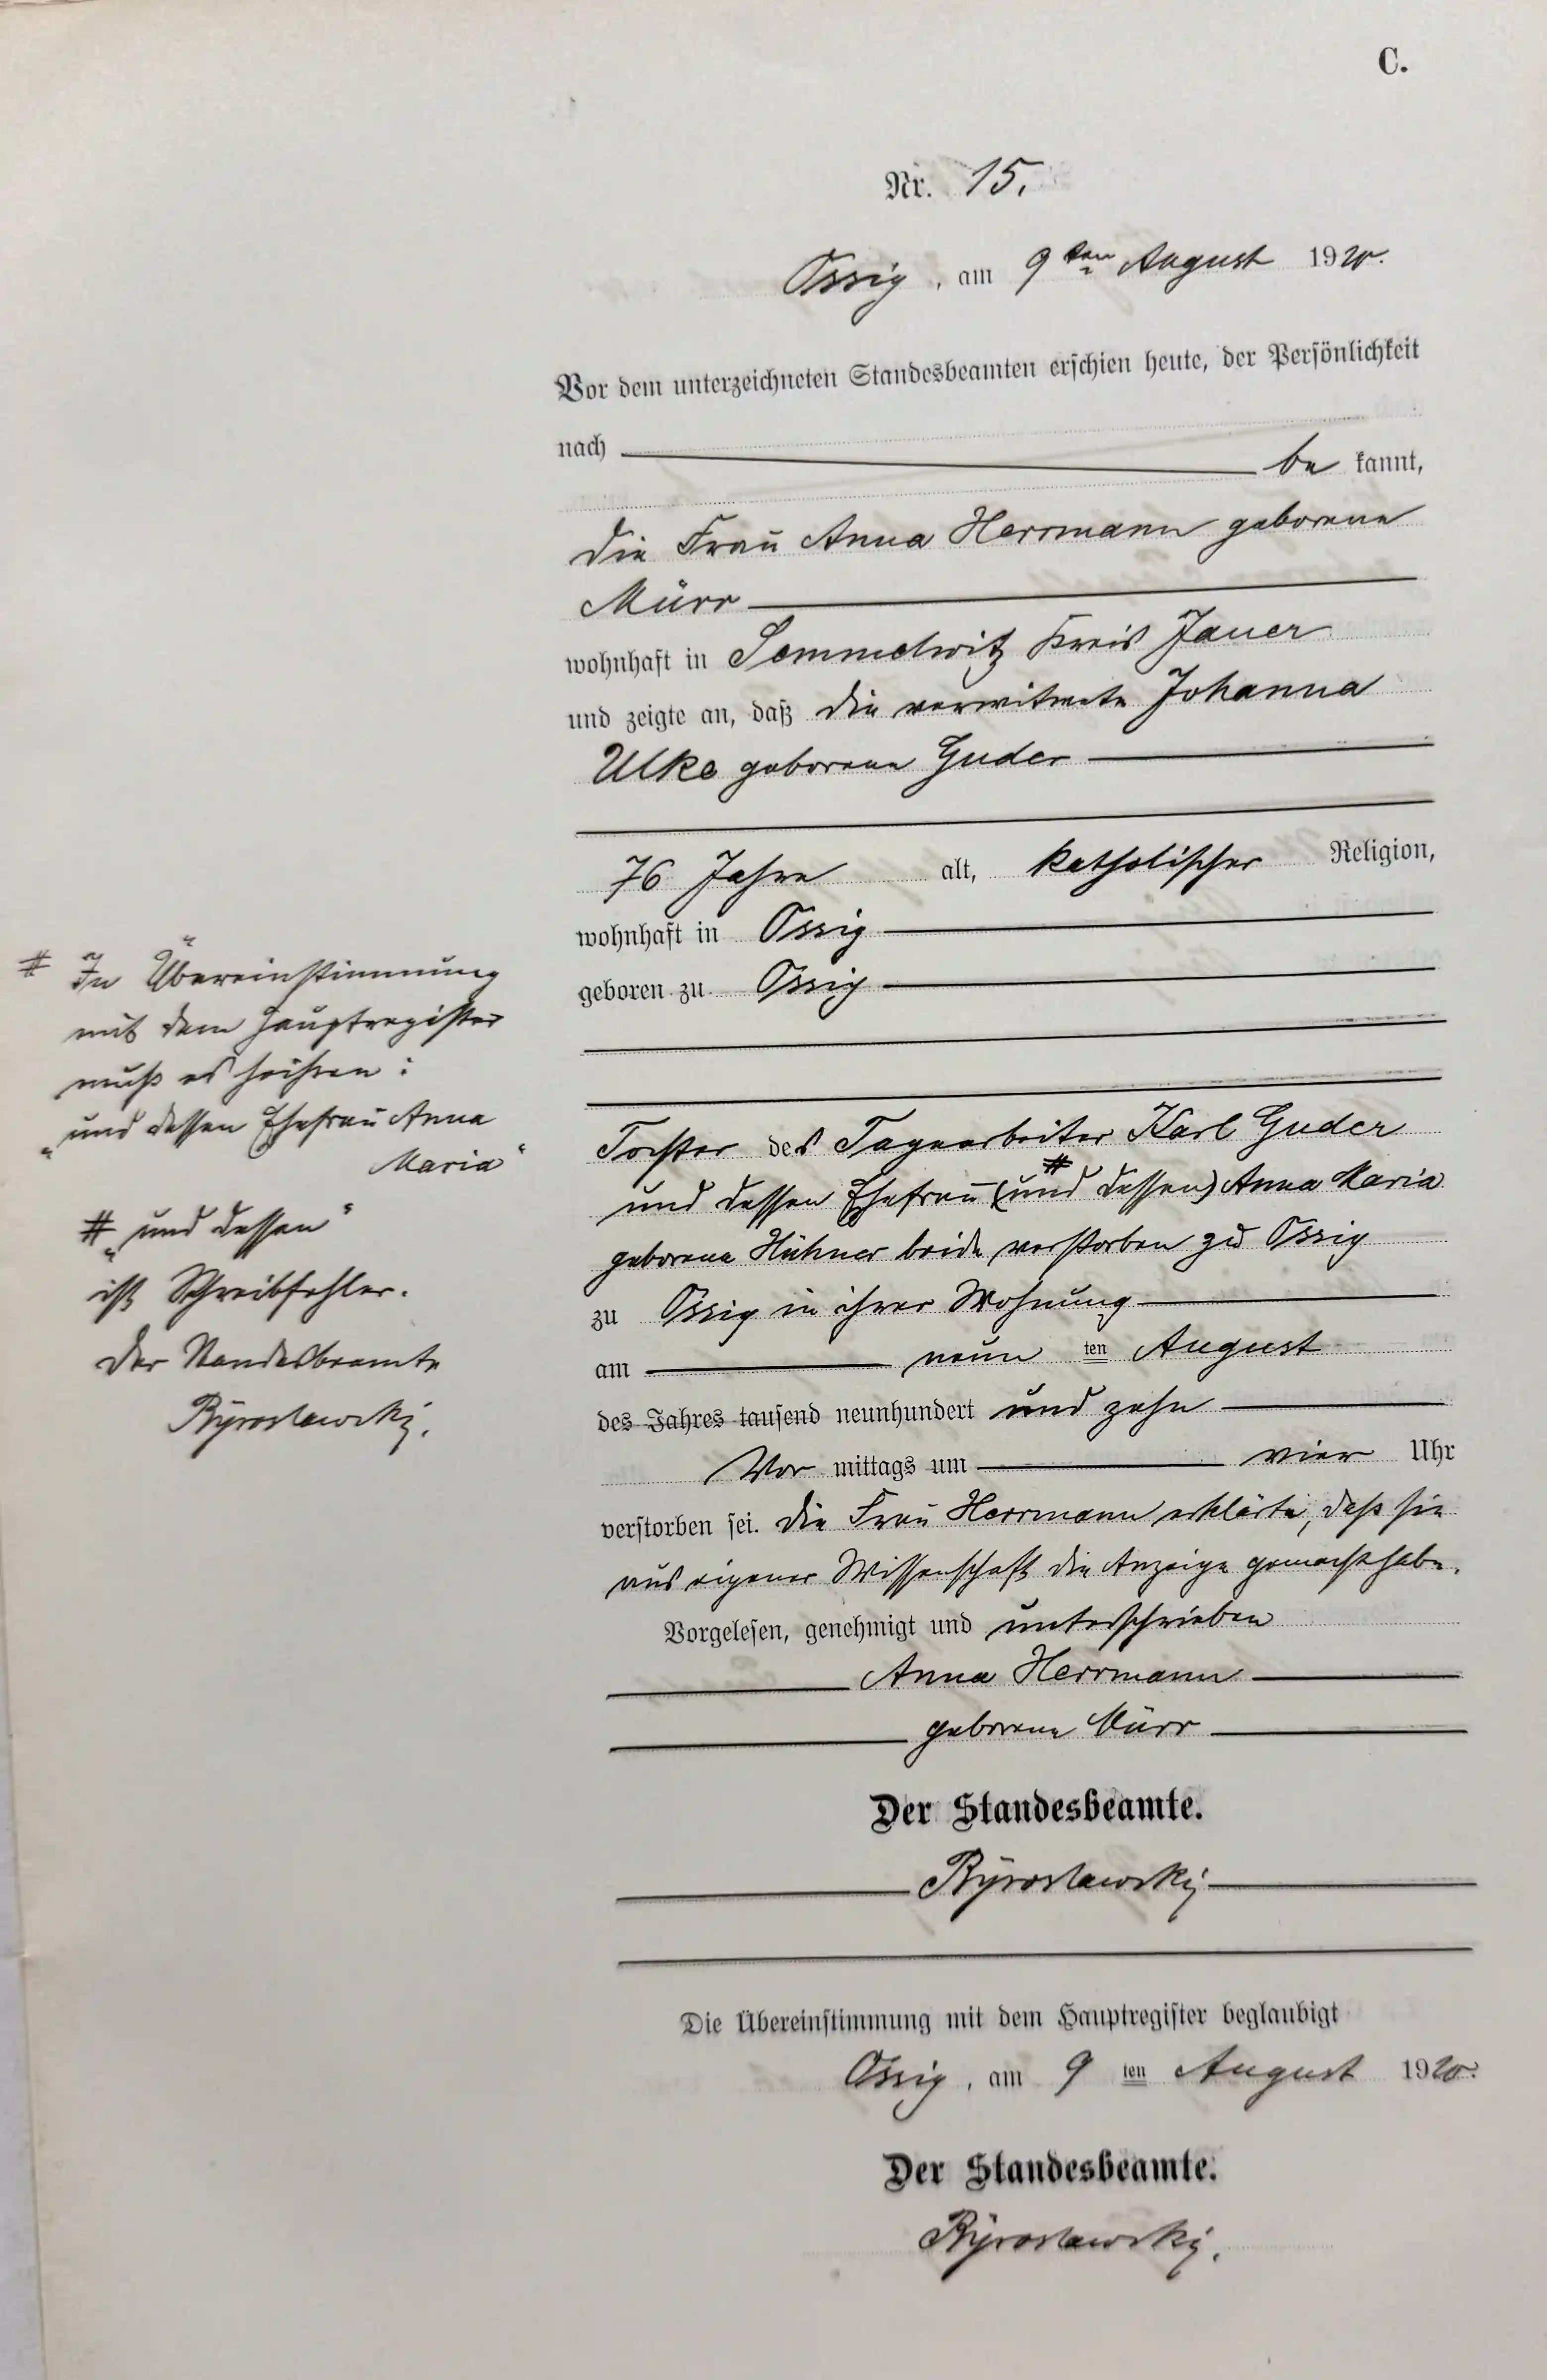 C.
Nr. 15.
Ossig, am 9ten August 1910.
Vor dem unterzeichneten Standesbeamten erschien heute, der Persönlichkeit
nach be kannt,
die Frau Anna Herrmann geborene
Mürr
wohnhaft in Semmelwitz Kreis Jauer
und zeigte an, daß die verwitwete Johanna
Ulke geborene Guder
76 Jahre alt, katholischer Religion,
wohnhaft in Ossig
geboren zu Ossig
Tochter des Tagearbeiter Karl Guder
und dessen Ehefrau (und dessen) # Anna Maria
geborene Hühner beide verstorben zu Ossig
zu Ossig in ihrer Wohnung
am neun ten August
des Jahres tausend neunhundert und zehn
Vor mittags um vier Uhr
verstorben sei. Die Frau Herrmann erklärte, daß sie
aus eigener Wissenschaft die Anzeige gemacht habe.
Vorgelesen, genehmigt und unterschrieben
Anna Herrmann
geborene Mürr
Der Standesbeamte.
Die Übereinstimmung mit dem Hauptregister beglaubigt
Ossig, am 9 ten August 1910.
Der Standesbeamte.
# In Übereinstimmung
mit dem Hauptregister
muß es heißen:
„und dessen Ehefrau Anna
Maria“
# „und dessen“
ist Schreibfehler.
Der Standesbeamte